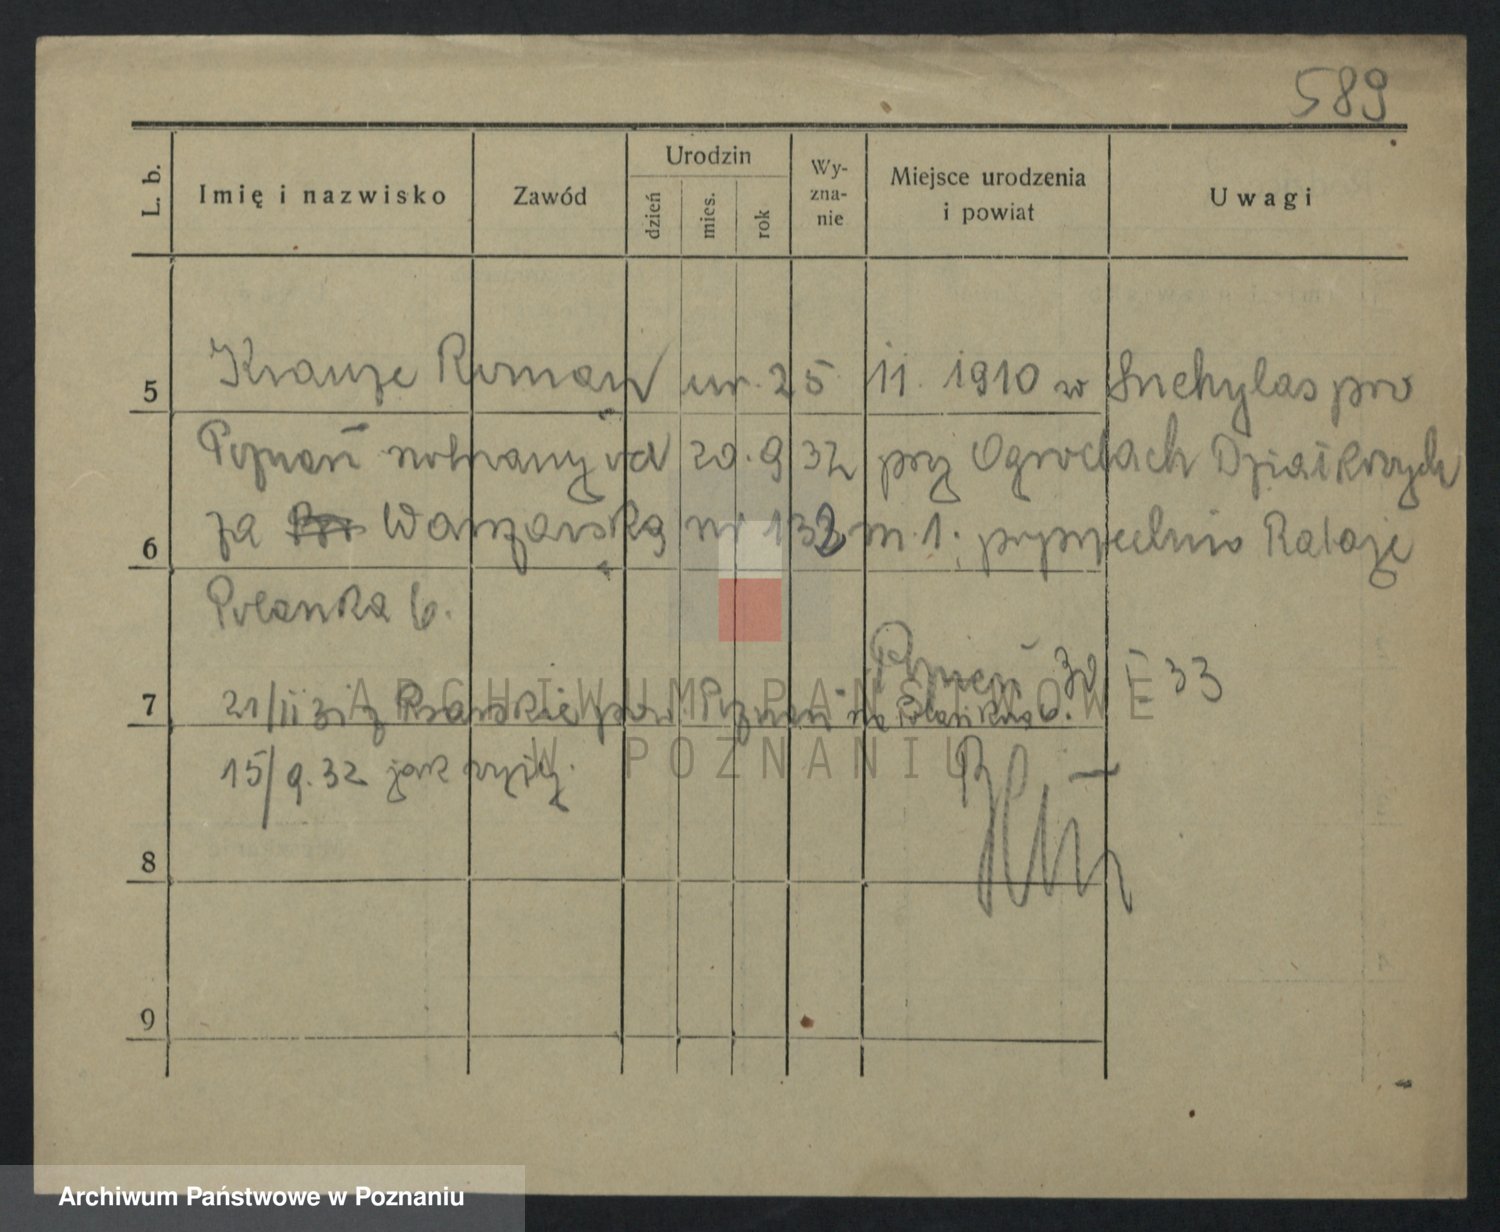 589
L. b.
Imię i nazwisko
Zawód
Urodzin
dzień
mies.
rok
Wy-
zna-
nie
Miejsce urodzenia
i powiat
Uwagi
5
Krauze Roman ur. 25 11. 1910 w Suchylas pow
Poznań notowany od 20.9 32 przy Ogrodach Działkowych
6
za Warszawską nr 132 m. 1. poprzednio Rataje
Polanka 6.
Poznań 30 I 33
7
21/11 31 z pow Poznań na Polankę 6.
15/9.32 jak wyżej.
8
9
ARCHIWUM PAŃSTWOWE
W POZNANIU
Archiwum Państwowe w Poznaniu